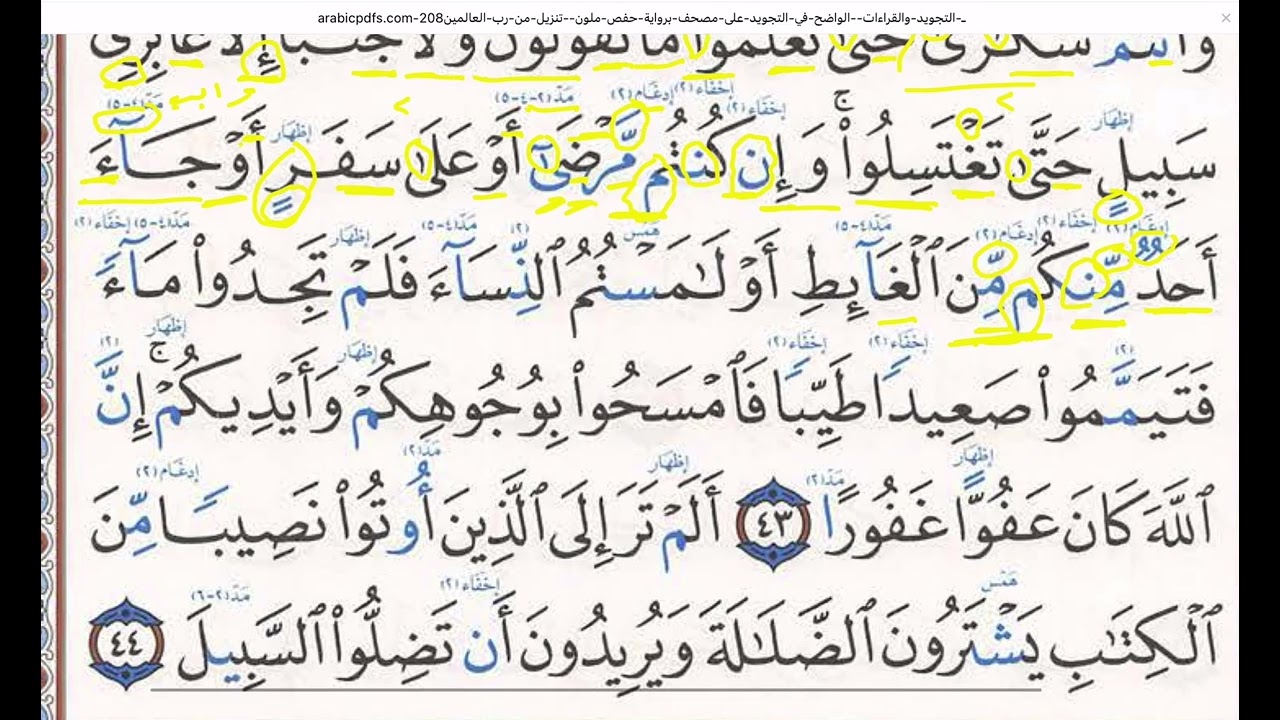 ـ-التجويد-والقراءات--الواضح-في-التجويد-على-مصحف-برواية-حفص-ملون--تنزيل-من-رب-العالمين208-arabicpdfs.com
وَأَنتُمْ سُكَٰرَىٰ حَتَّىٰ تَعْلَمُوا۟ مَا تَقُولُونَ وَلَا جُنُبًا إِلَّا عَابِرِى
مَدّ(٤-٥) إظهار مَدّ(٢-٤-٥) إدغام(٢) إخفاء(٢) إخفاء(٢) إظهار
سَبِيلٍ حَتَّىٰ تَغْتَسِلُوا۟ ۚ وَإِن كُنتُم مَّرْضَىٰٓ أَوْ عَلَىٰ سَفَرٍ أَوْ جَآءَ
إدغام(٢) إخفاء(٢) إدغام(٢) مَدّ(٤-٥) هَمْس (٢) مَدّ(٤-٥) إظهار مَدّ(٤-٥) إخفاء(٢)
أَحَدٌ مِّنكُم مِّنَ ٱلْغَآئِطِ أَوْ لَٰمَسْتُمُ ٱلنِّسَآءَ فَلَمْ تَجِدُوا۟ مَآءً
(٢) إخفاء(٢) إخفاء(٢) إظهار إظهار (٢)
فَتَيَمَّمُوا۟ صَعِيدًا طَيِّبًا فَٱمْسَحُوا۟ بِوُجُوهِكُمْ وَأَيْدِيكُمْ ۗ إِنَّ
إظهار مَدّ(٢) إظهار مَدّ(٢) إدغام(٢)
ٱللَّهَ كَانَ عَفُوًّا غَفُورًا ٤٣ أَلَمْ تَرَ إِلَى ٱلَّذِينَ أُوتُوا۟ نَصِيبًا مِّنَ
هَمْس إخفاء(٢) مَدّ(٢-٦)
ٱلْكِتَٰبِ يَشْتَرُونَ ٱلضَّلَٰلَةَ وَيُرِيدُونَ أَن تَضِلُّوا۟ ٱلسَّبِيلَ ٤٤